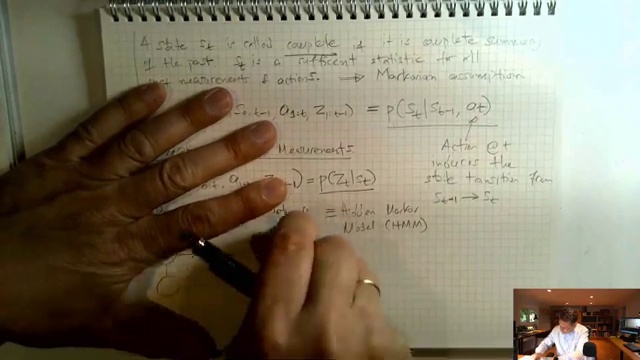 A state St is called complete if it is complete summary
of the past St is a sufficient statistic for all
past measurements & actions. → Markovian assumption
S0:t-1, a1:t, Z1:t-1) = p(St|St-1, at)
Action @ t
induces the
state transition from
St-1 → St
Measurements
) = p(Zt|St)
≡ Hidden Markov
Model (HMM)